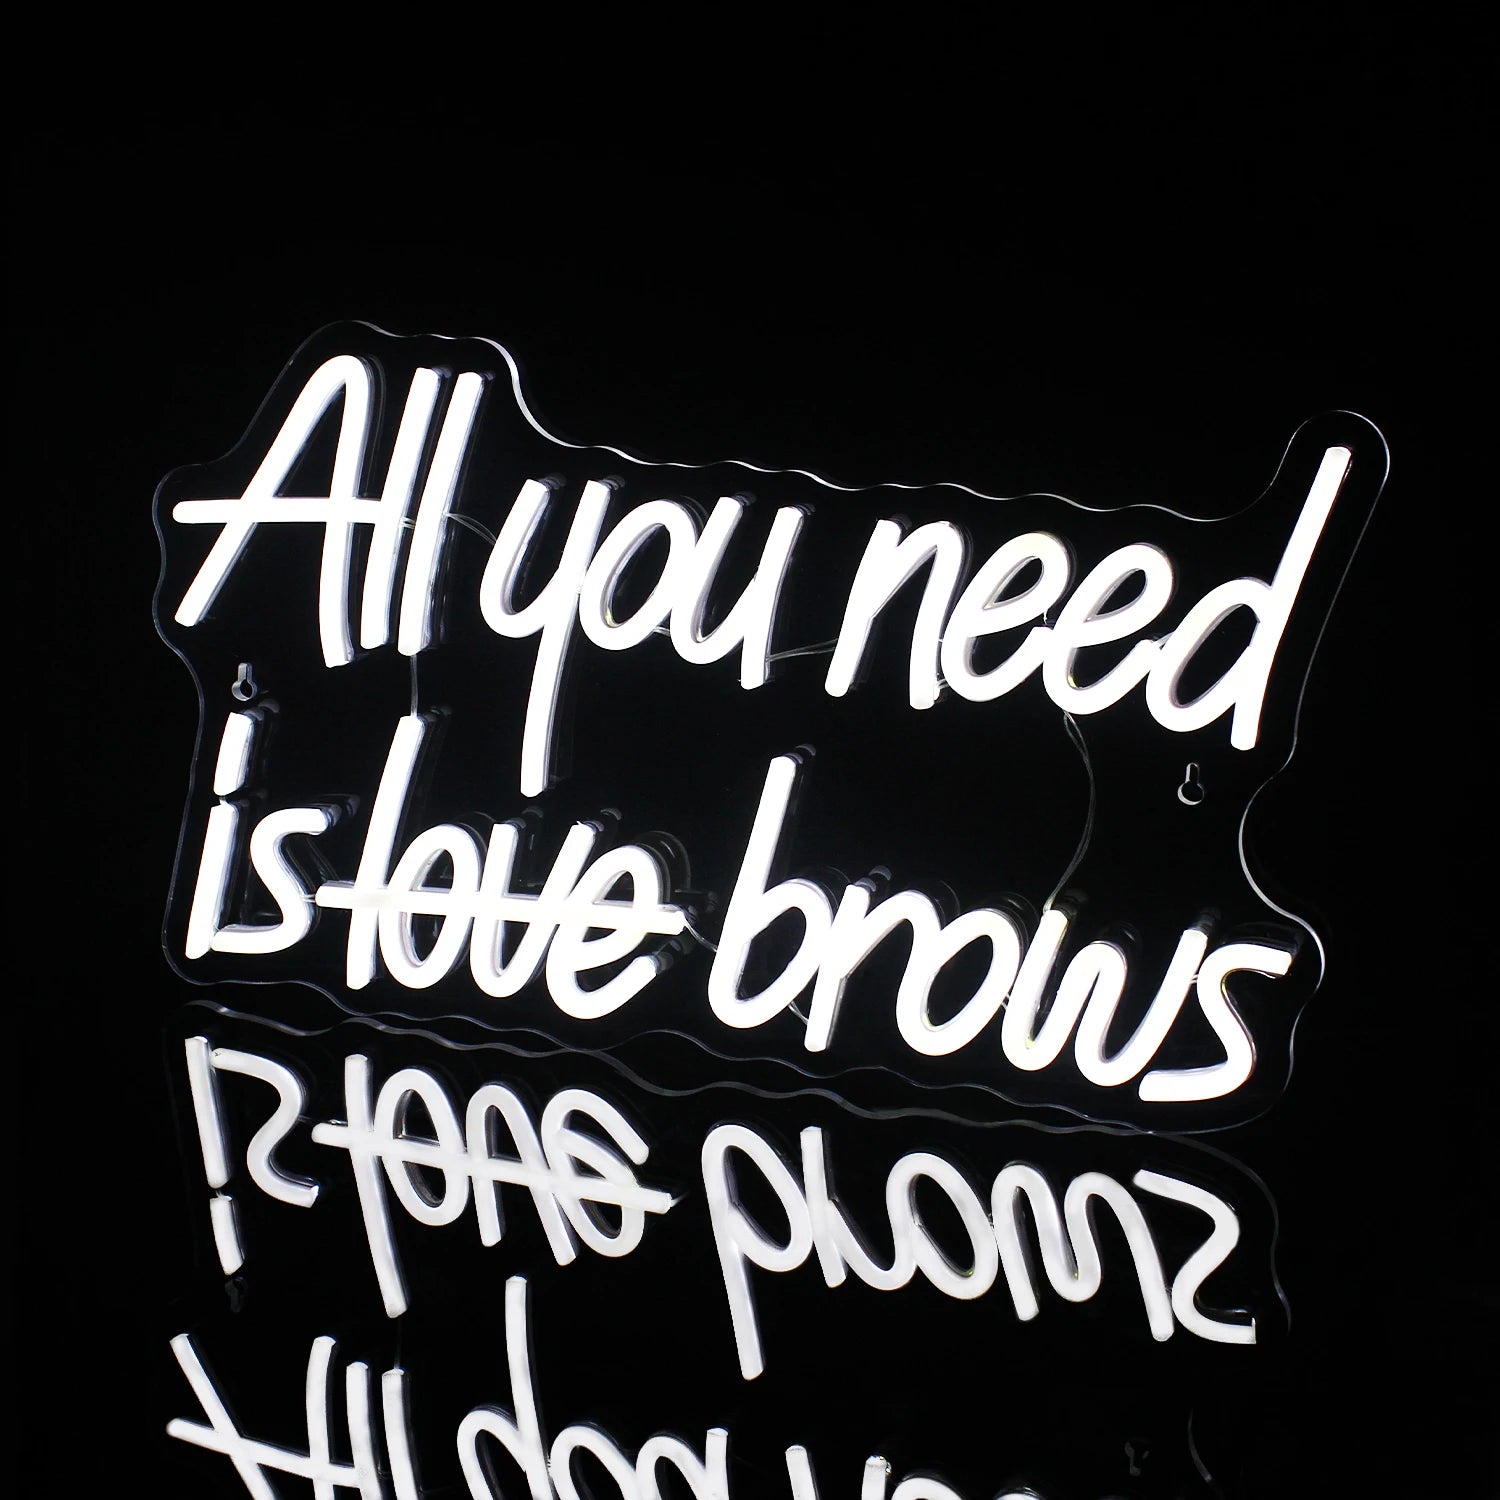 All you need
is love brows